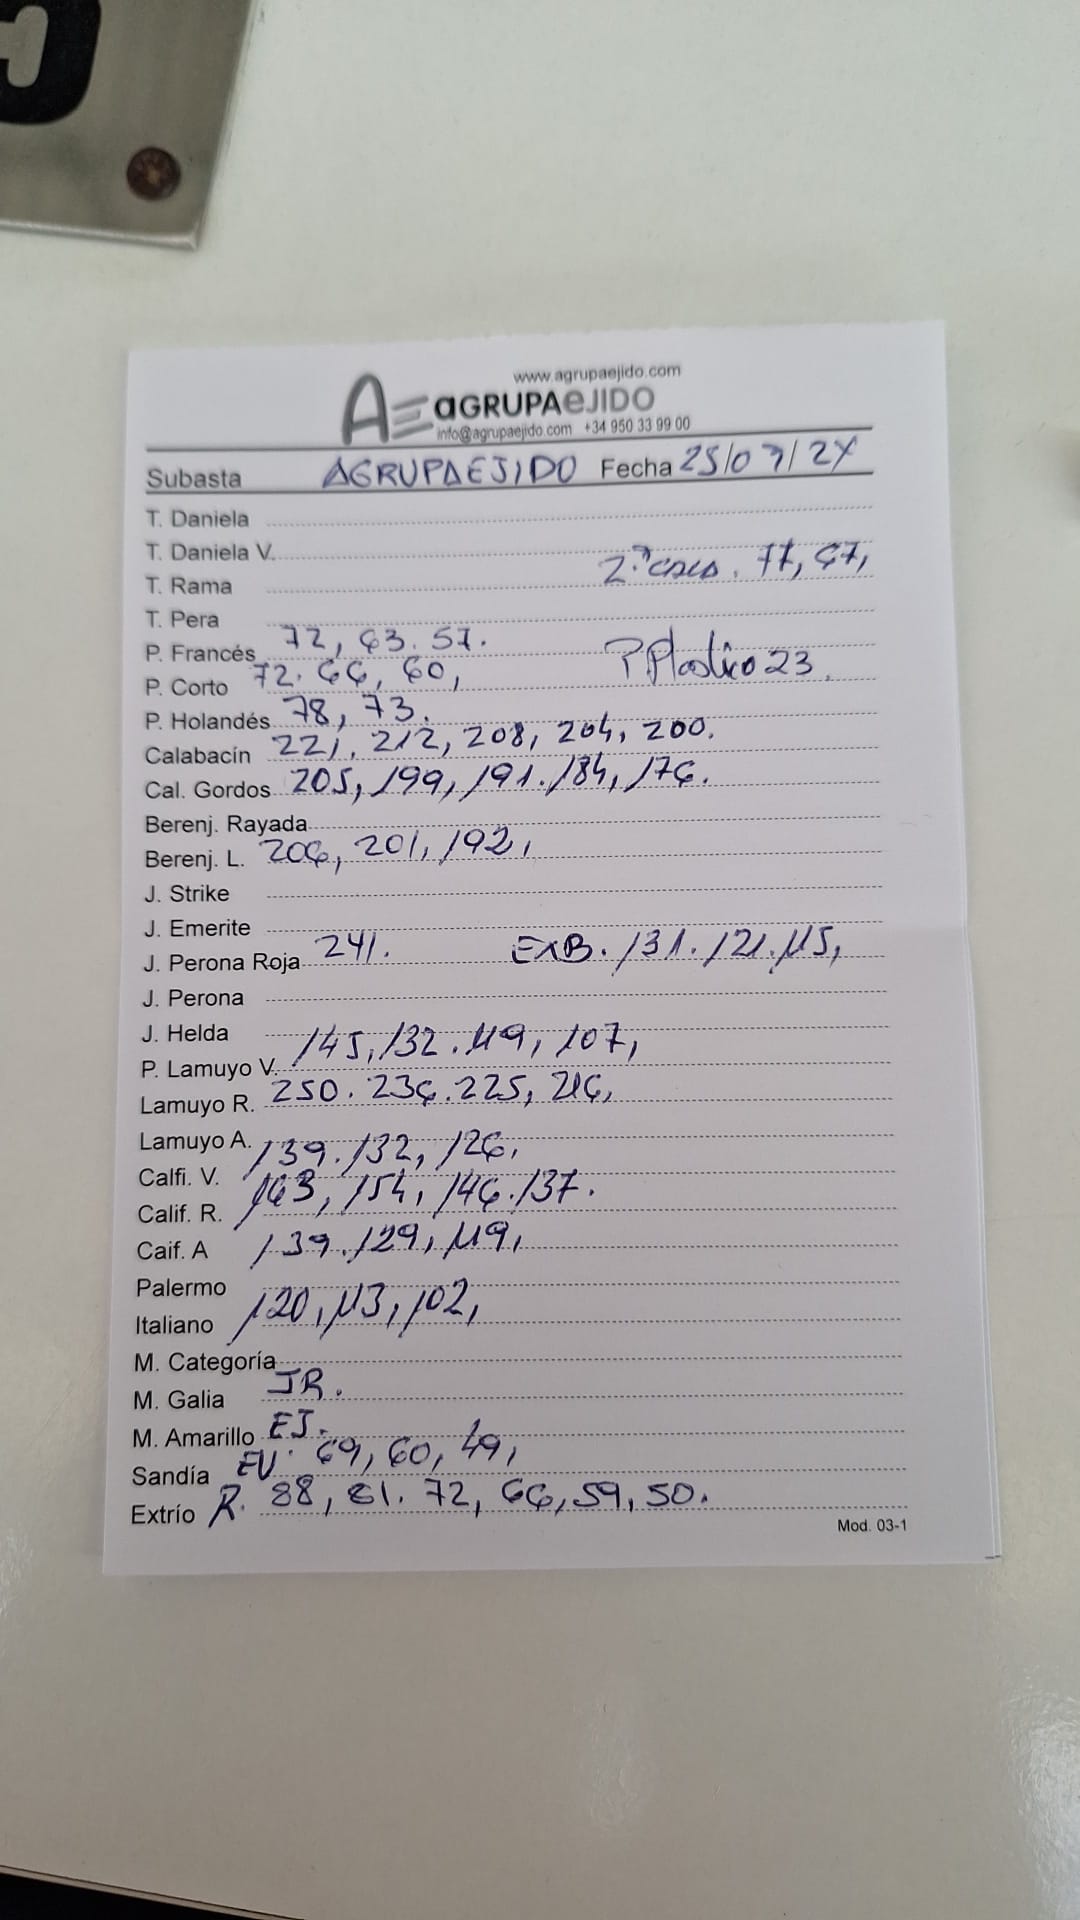 www.agrupaejido.com
AE aGRUPAeJIDO
info@agrupaejido.com +34 950 33 99 00
Subasta AGRUPAEJIDO Fecha 25/07/24
T. Daniela
T. Daniela V.
T. Rama 2.ª 77, 67,
T. Pera
P. Francés 72, 63. 57.
P. Corto 72. 66, 60, P. Plastico 23.
P. Holandés 78, 73.
Calabacín 221, 212, 208, 204, 200.
Cal. Gordos 205, 199, 191. 184, 176.
Berenj. Rayada
Berenj. L. 206, 201, 192,
J. Strike
J. Emerite
J. Perona Roja 241. EXB. 131. 121. 115,
J. Perona
J. Helda
P. Lamuyo V. 145, 132. 119, 107,
Lamuyo R. 250. 236. 225, 216,
Lamuyo A.
Calfi. V. 139. 132, 126,
Calif. R. 163, 154, 146. 137.
Caif. A 139. 129, 119,
Palermo
Italiano 120, 113, 102,
M. Categoría
M. Galia JR.
M. Amarillo EJ.
Sandía EU. 69, 60, 49,
Extrío R. 88, 81. 72, 66, 59, 50.
Mod. 03-1